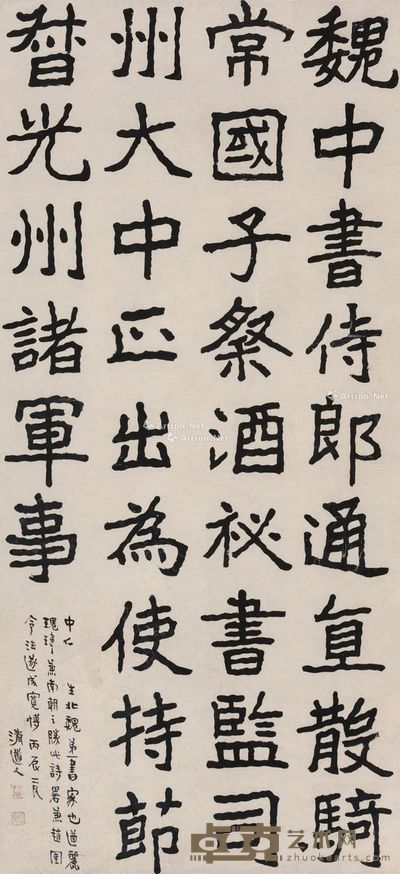 魏中書侍郎通直散騎
常國子祭酒祕書監司
州大中正出為使持節
督光州諸軍事
中 生北魏弟一書家也遒麗
瑰瑋兼南朝之勝此詩署兼趙圉
令法遂成寬博 丙辰二月
清道人
Artron.Net
Artron.Net
Artron.Net
Artron.Net
艺术网
zhuokearts.com